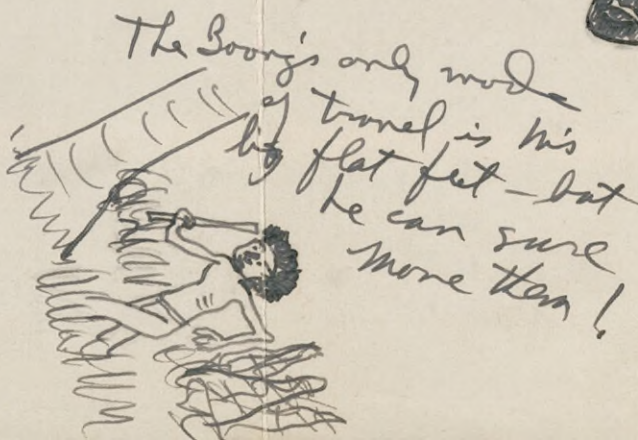 The Boong's only mode
of travel is his
big flat feet – but
he can sure
move them!